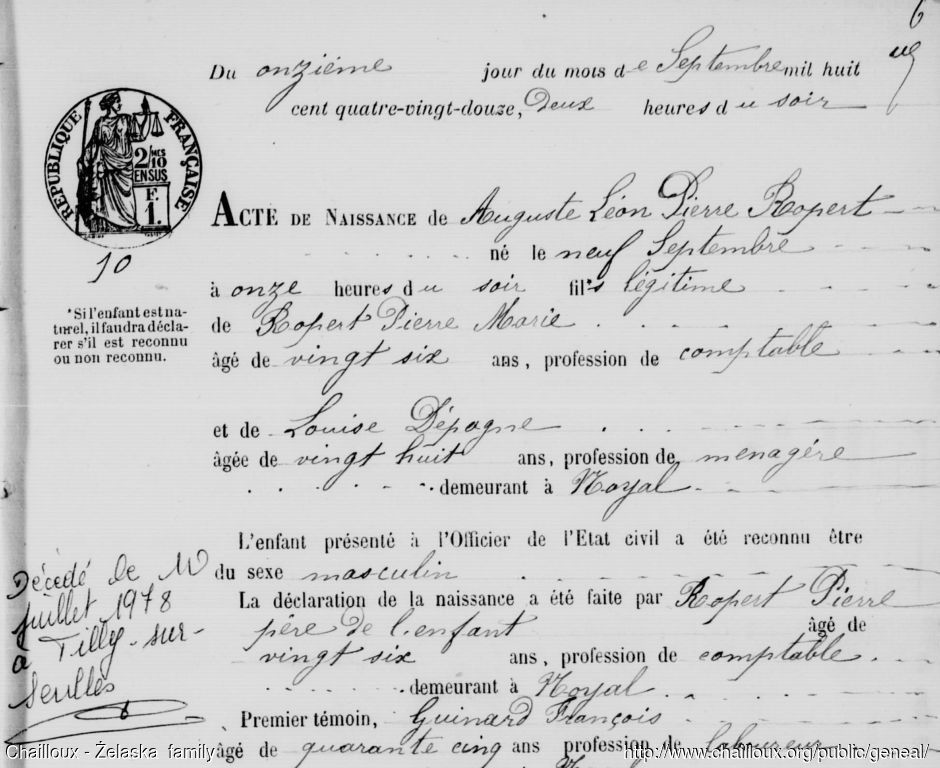 6
Du onzième jour du mois de Septembre mil huit
cent quatre-vingt-douze, Deux heures du soir
REPUBLIQUE FRANÇAISE
2/MES
10
EN SUS
F.
1.
ACTE DE NAISSANCE de Auguste Léon Pierre Ropert
né le neuf Septembre
10
à onze heures du soir fil*s légitime
*Si l'enfant est na-
turel, il faudra décla-
rer s'il est reconnu
ou non reconnu.
de Ropert Pierre Marie
âgé de vingt six ans, profession de comptable
et de Louise Dépagne
âgée de vingt huit ans, profession de menagére
demeurant à Noyal
L'enfant présenté à l'Officier de l'Etat civil a été reconnu être
du sexe masculin
La déclaration de la naissance a été faite par Ropert Pierre
père de l'enfant âgé de
vingt six ans, profession de comptable
demeurant à Noyal
Décédé le
juillet 1978
à Tilly-sur-
Seulles
Premier témoin, Guinard François
âgé de quarante cinq ans profession de laboureur
Chailloux - Želaska family
http://www.chailloux.org/public/geneal/